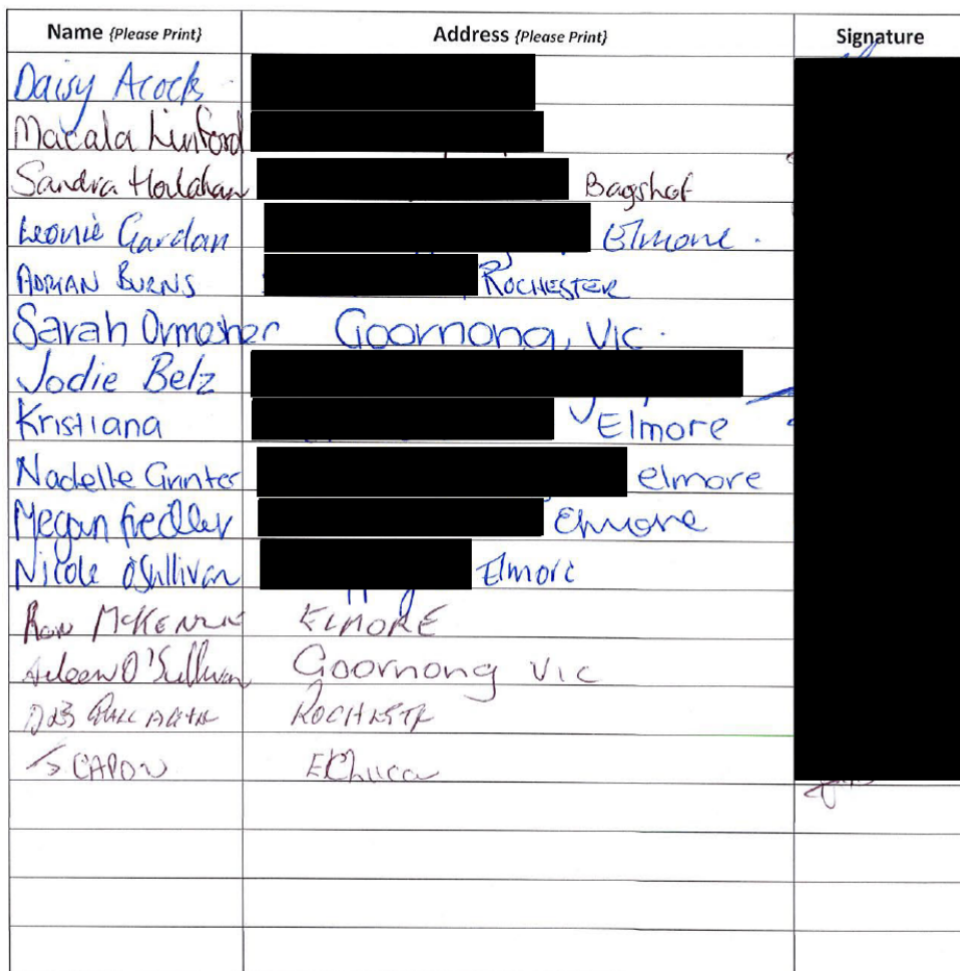 Name (Please Print) Address (Please Print) Signature
Daisy Acocks
Macala Linford
Sandra Houlahan Bagshot
Leonie Gardan Elmore.
ADRIAN BURNS ROCHESTER
Sarah Ormesher Goornong, Vic.
Jodie Belz
Kristiana Elmore
Nadelle Grinter elmore
Megan Fiedler Elmore
Nicole O'Sullivan Elmore
Ron McKENZIE ELMORE
Aileen O'Sullivan Goornong Vic
DEB GALLAGHER ROCHESTER
CAPON Echuca